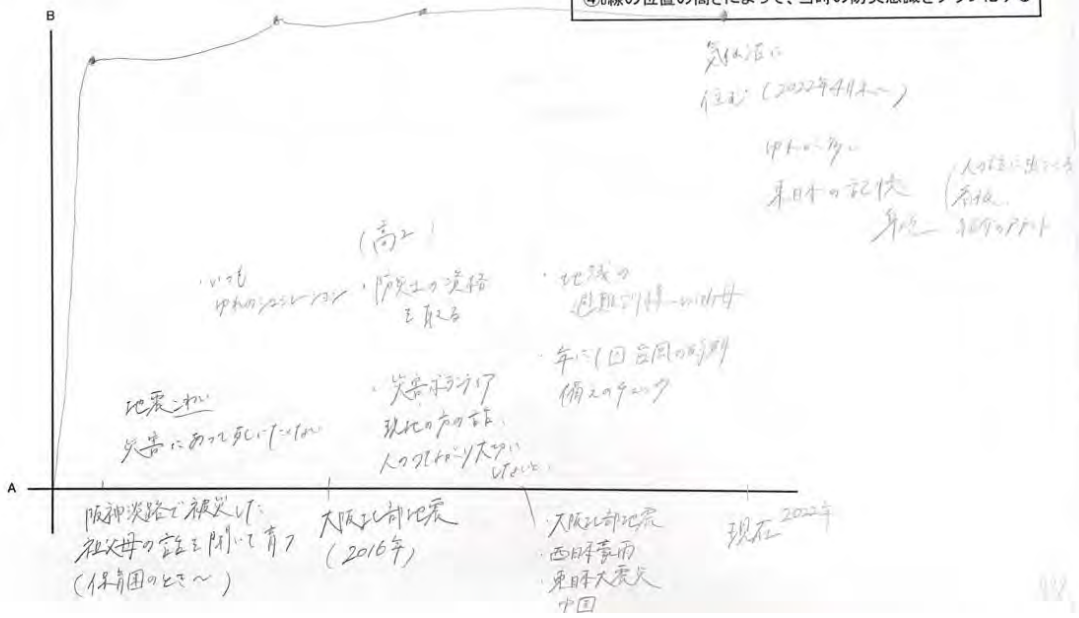 B
④線の位置の高さによって、当時の防災意識をグラフ化する
気仙沼に
住む（2022年4月末〜）
ゆれが多い
東日本の記憶
人の話に出てくる
看板、
身近
（高2）
・いつも
ゆれのシュミレーション
・防災士の資格
を取る
・地域の
・年に1回
備えのチェック
地震こわい
災害にあって死にたくない
・災害ボランティア
現地の方の話、
人のつながり大切に
しないと、
A
阪神淡路で被災した
祖父母の話を聞いて育つ
（保育園のとき〜）
大阪北部地震
（2016年）
・大阪北部地震
・西日本豪雨
・東日本大震災
中国
現在 2022年